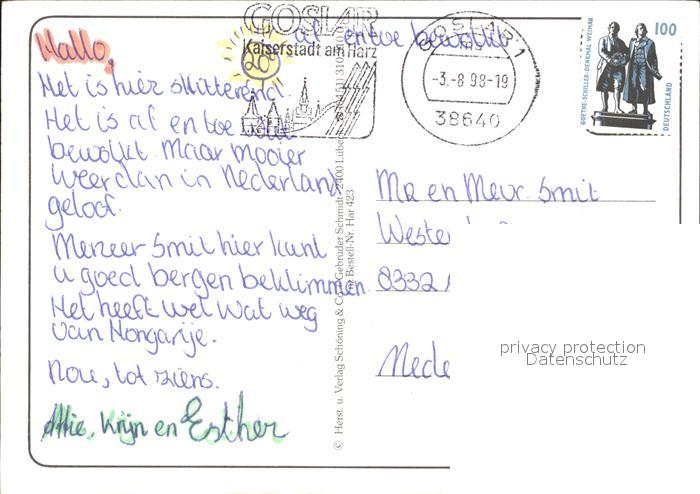 Hallo,
af en toe bewolkt
20°
Het is hier skitterend.
Het is af en toe
bewolkt. Maar mooier
weer dan in Nederland
geloof.
Meneer Smit hier kunt
u goed bergen beklimmen.
Het heeft wel wat weg
van Hongarije.
Nou, tot ziens.
Attie, Krijn en Esther
GOSLAR
Kaiserstadt am Harz
GOSLAR 1
-3.-8 98-19
38640
100
GOETHE-SCHILLER-DENKMAL WEIMAR
DEUTSCHLAND
© Herst. u. Verlag Schöning & Co + Gebrüder Schmidt
Bestell-Nr. Har 423
Mr en Mevr. Smit
Weste
8332
Nede
privacy protection
Datenschutz